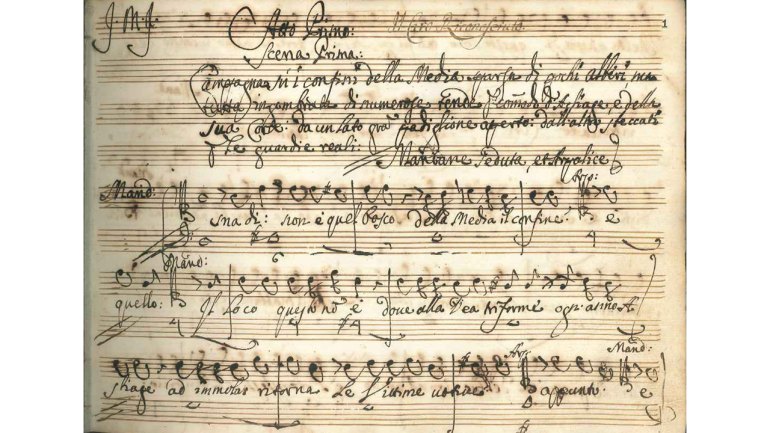 J. M. J. Atto Primo: Il Ciro Riconosciuto. 1
Scena Prima:
Campagna sù i confini della Media sparsa di pochi alberi ma
tutta ingombrata di numerose tende p comodo d'Astiage e della
sua Corte. da un lato gra padiglione aperto: dall'altro steccati
p le guardie reali:
Mandane seduta, et Arpalice
Arp:
Mand:
sna di: non è quel bosco della Media il confine. è
Mand:
quello: Il loco questo nò è dove alla Dea triforme ogn'anno A
Arp: Mand:
stiage ad immolar ritorna le Vittime appunto. e